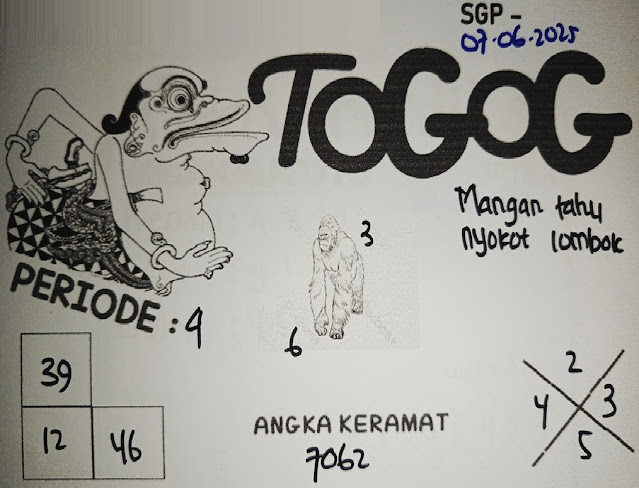 SGP -
07.06.2025
TOGOG
Mangan tahu
nyokot lombok
3
6
PERIODE : 4
39
12 46
ANGKA KERAMAT
7062
2
4 3
5